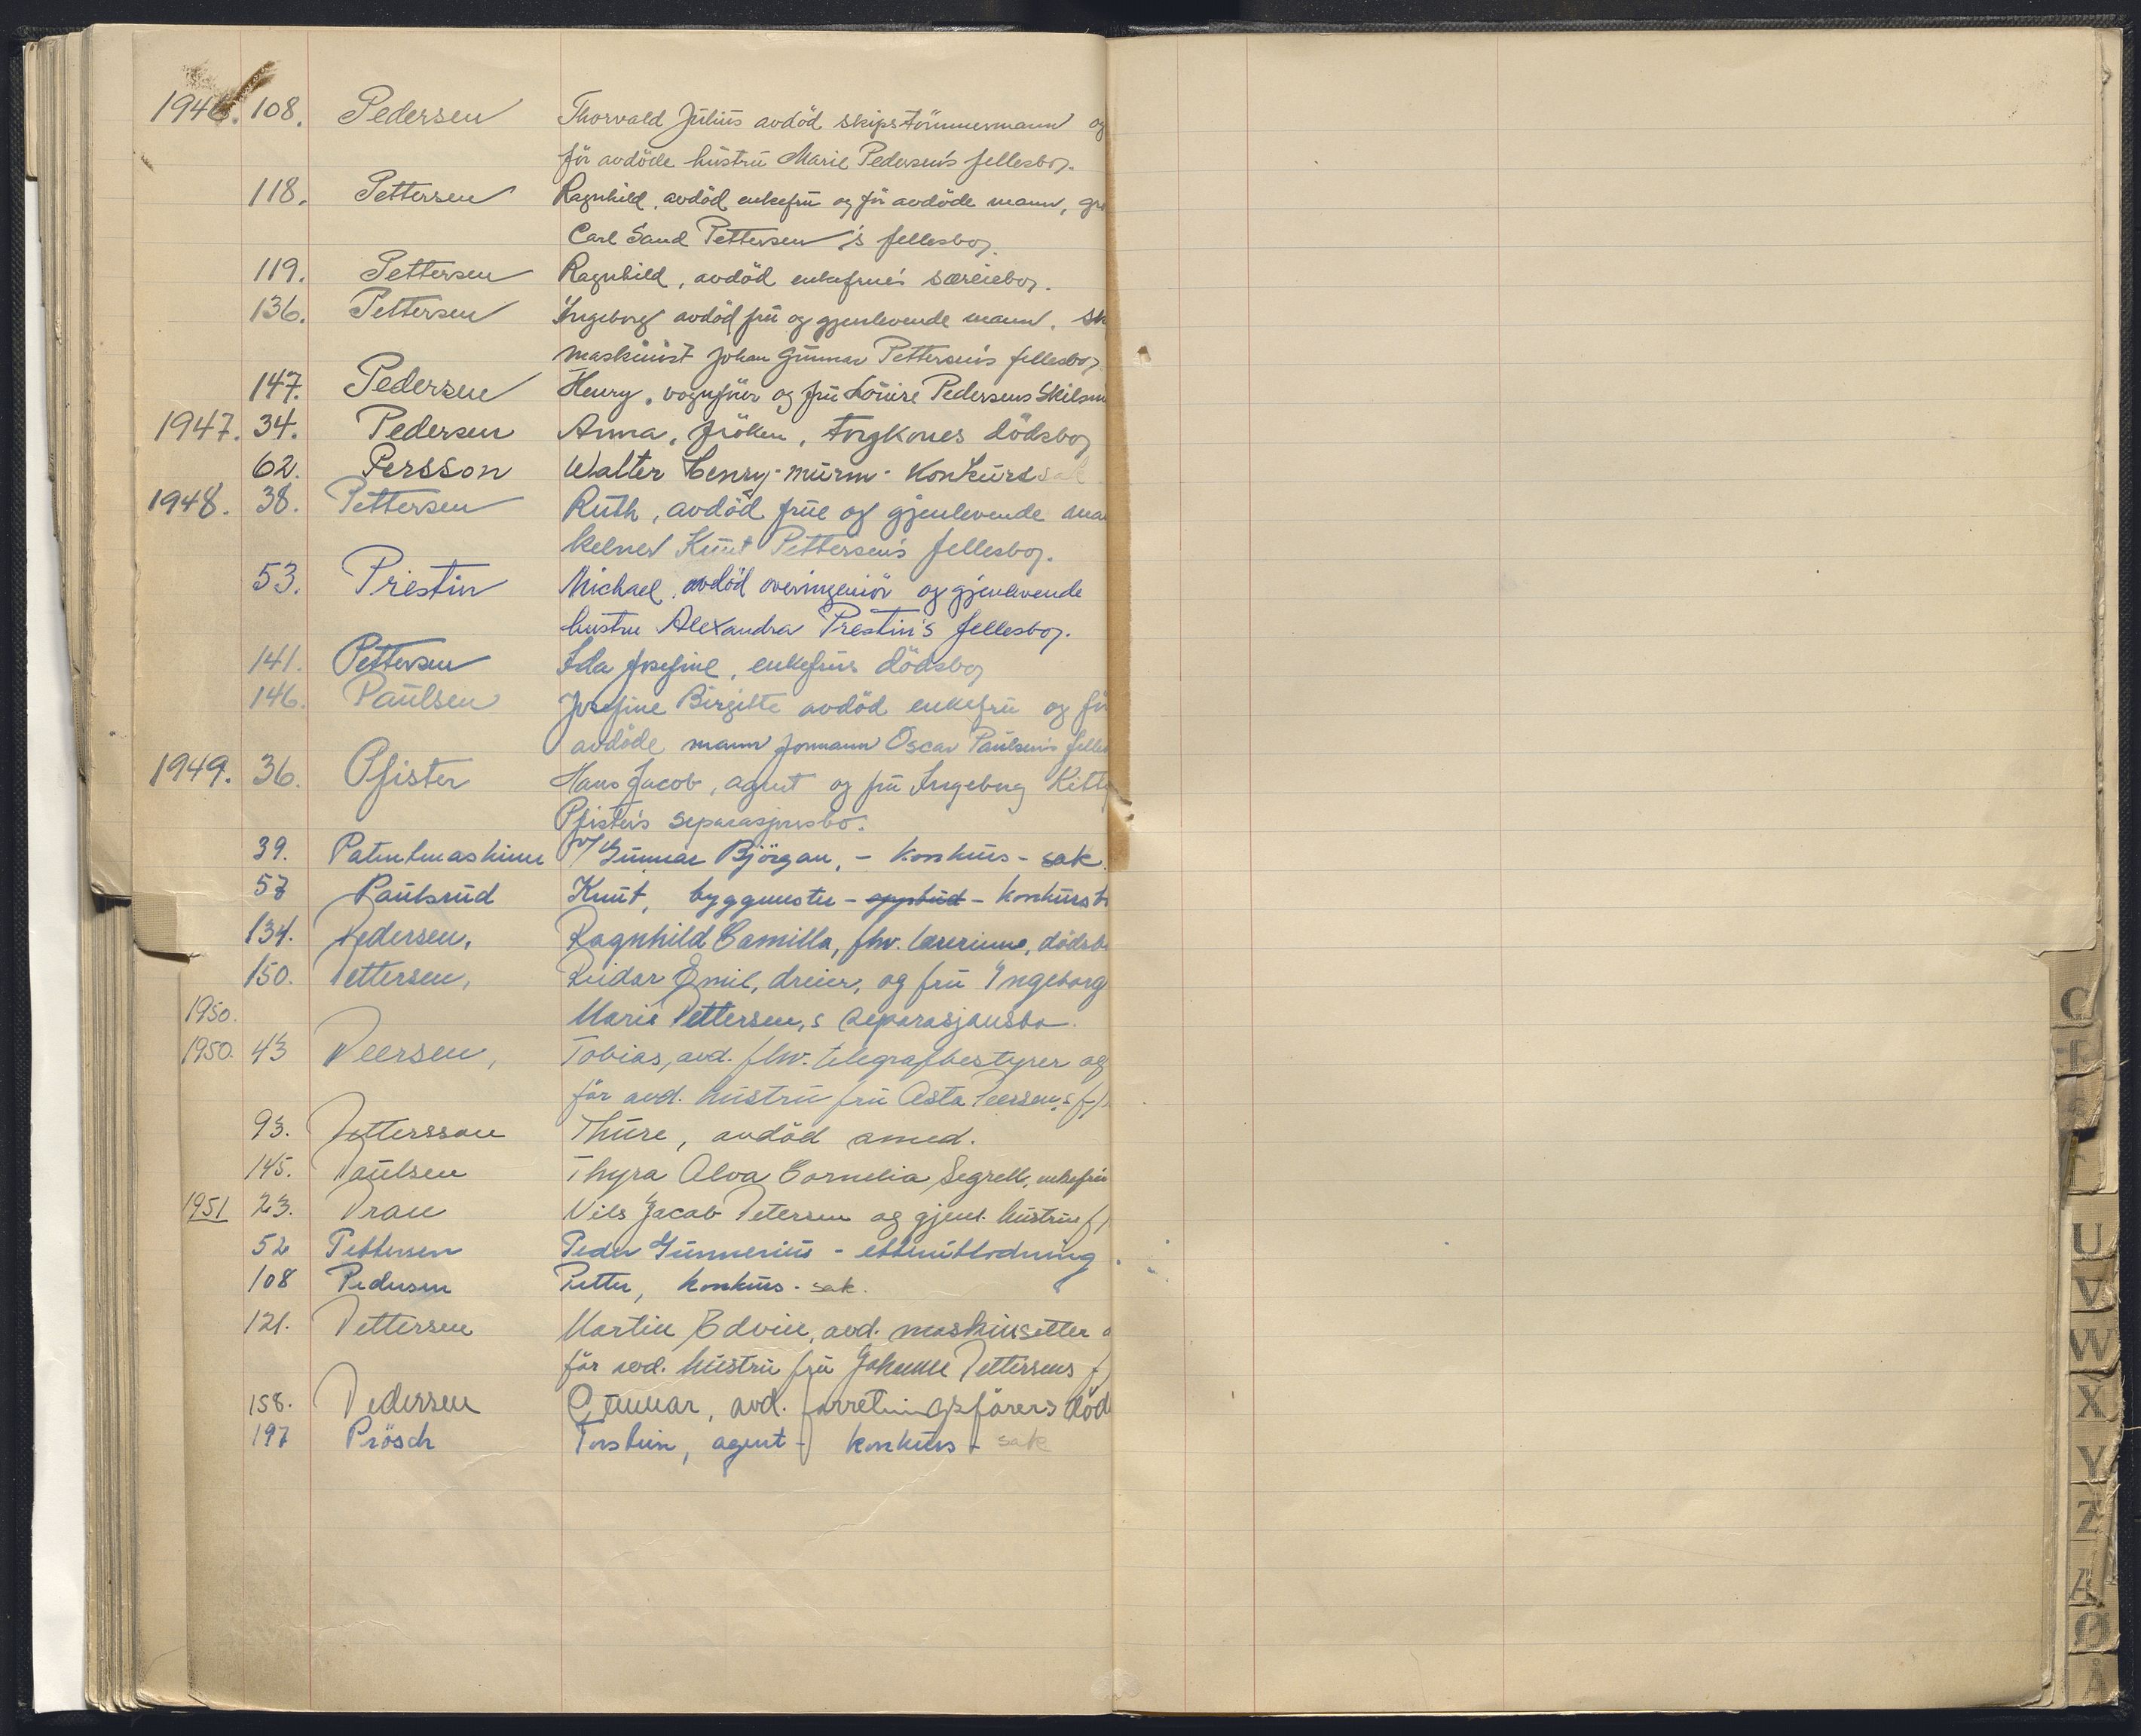 1946. 108. Pedersen Thorvald Julius avdöd skipstömmermann og
för avdöde hustru Marie Pedersen's fellesbo.
118. Pettersen Ragnhild, avdöd enkefru og för avdöde mann,
Carl Sand Pettersen's fellesbo.
119. Pettersen Ragnhild, avdöd enkefrue's særeiebo.
136. Pettersen Ingeborg avdöd fru og gjenlevende mann,
maskinist Johan Gunnar Pettersen's fellesbo
147. Pedersen Henry, vognfører og fru Louise Pedersens
1947. 34. Pedersen Anna, fröken, torgkones dödsbo
62. Persson Walter Henry - murm - Konkurs sak
1948. 38. Pettersen Ruth, avdöd frue og gjenlevende
kelner Knut Pettersen's fellesbo.
53. Prestin Michael, avdöd overingeniör og gjenlevende
hustru Alexandra Prestin's fellesbo.
141. Pettersen Ida Josefine, enkefrus dödsbo
146. Paulsen Josefine Birgitte avdöd enkefru og för
avdöde mann formann Oscar Paulsen's
1949. 36. Pfister Hans Jacob, agent og fru Ingeborg Kitty
Pfister's separasjonsbo.
39. Patentmaskiner v/ Gunnar Björgan, - konkurs - sak.
57 Paulsrud Knut, byggmester - oppbud - konkurs
134. Pedersen, Ragnhild Camilla, fhv. lærerinne,
150. Pettersen, Reidar Emil, dreier, og fru Ingeborg
1950. Marie Pettersen,s separasjonsbo.
1950. 43 Peersen, Tobias, avd. fhv. telegrafbestyrer og
för avd. hustru fru Asta Peersen,s
93. Pettersson Thure, avdöd smed.
145. Paulsen Thyra Alva Cornelia Segrell, enkefru
1951 23. Prau Nils Jacob Petersen og gjenl. hustrus
52 Pettersen Peder Gunnerius - etterutlodning
108 Pedersen Petter, konkurs - sak.
121. Pettersen Martin Edvin, avd. maskinsetter
för avd. hustru fru Johanne Pettersens
158. Pedersen Gunnar, avd. forretningsförers död
197 Prösch Torstein, agent - konkurs - sak
C
T
U
V
W
X
Y
Z
Æ
Ø
Å